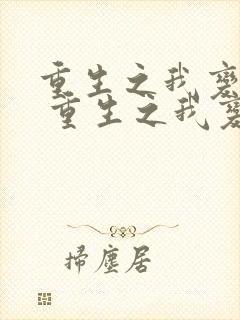 重生之我
重生之我
掃塵居